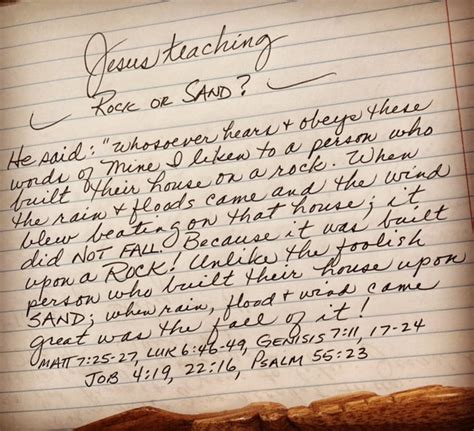 Jesus teaching
ROCK OR SAND?
He said: "Whosoever hears + obeys these
words of Mine I liken to a person who
built their house on a rock. When
the rain + floods came and the wind
blew beating on that house; it
did NOT FALL. Because it was built
upon a ROCK! Unlike the foolish
person who built their house upon
SAND; when rain, flood + wind came
great was the fall of it!
MATT 7:25-27, LUK 6:46-49, GENISIS 7:11, 17-24
JOB 4:19, 22:16, PSALM 55:23